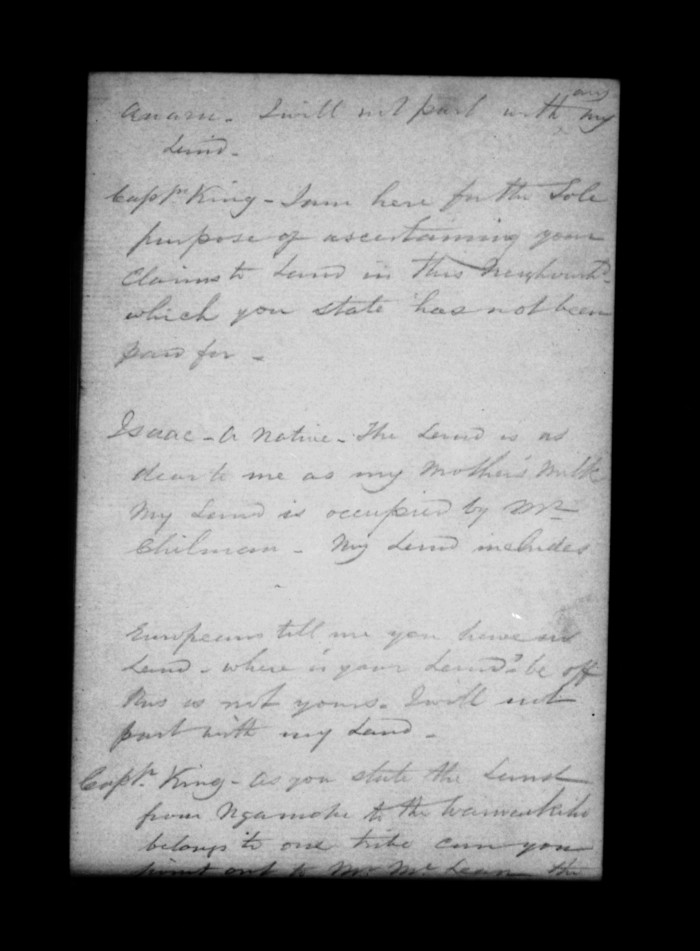 any
I will not part with my
Land.
Capt<sup>n</sup> King - I am here for the Sole
purpose of ascertaining your
Claims to Land in this Neighbourh<sup>d</sup>
which you state has not been
paid for -
Isaac - A Native - The Land is as
dear to me as my Mother's Milk
My Land is occupied by Mr
Chilman - My Land includes
Europeans tell me you have no
Land - where is your Land? be off
this is not yours. I will not
part with my Land -
Capt<sup>n</sup> King - As you state the Land
from Ngamotu to the
belongs to one tribe can you
point out to Mr McLean the